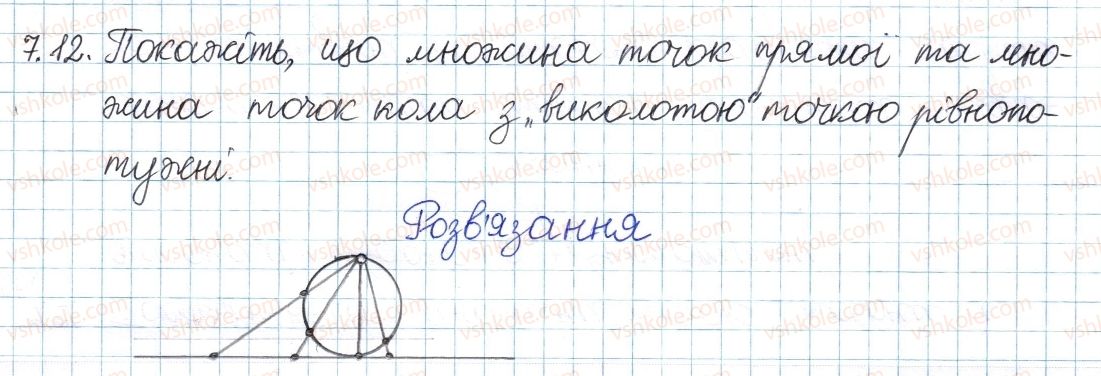 7.12. Покажіть, що множина точок прямої та мно-
жина точок кола з „виколотою" точкою рівнопо-
тужні.
Розв'язання